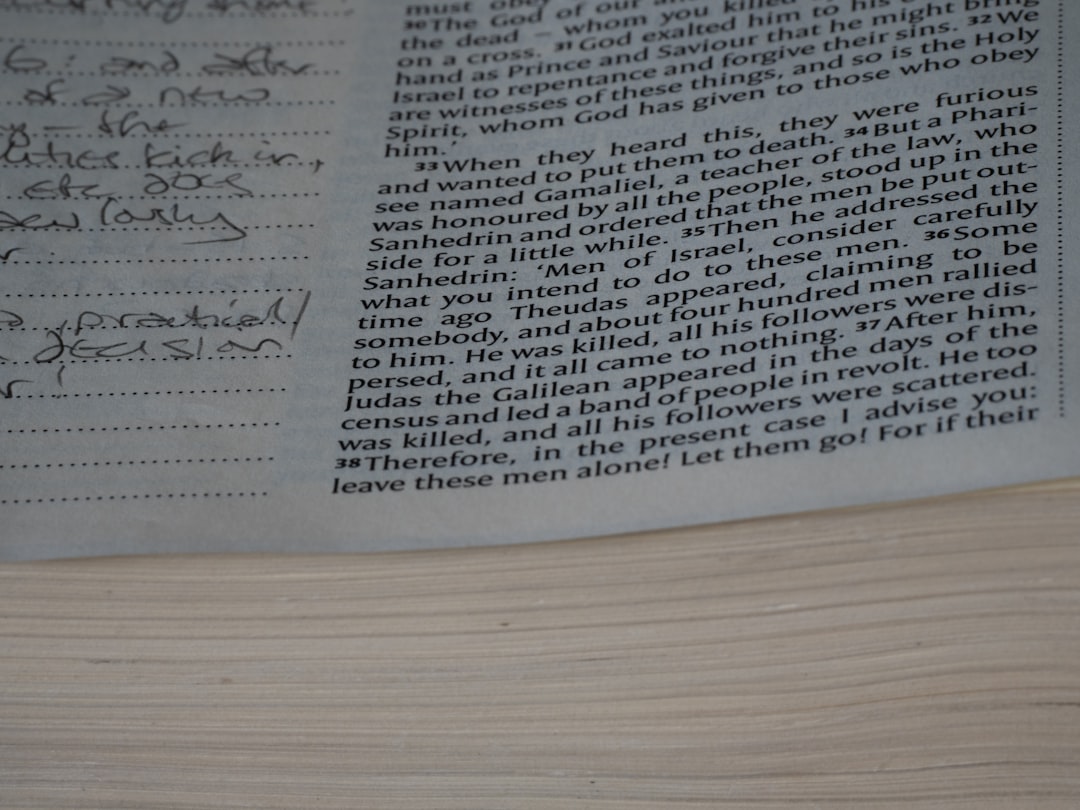 6: and after
of a new
the
kick in,
etc, does
practical/
decision
must obey
30 The God of our whom you killed
the dead – whom you killed
on a cross. 31 God exalted him to his
hand as Prince and Saviour that he might bring
Israel to repentance and forgive their sins. 32 We
are witnesses of these things, and so is the Holy
Spirit, whom God has given to those who obey
him.'
33 When they heard this, they were furious
and wanted to put them to death. 34 But a Phari-
see named Gamaliel, a teacher of the law, who
was honoured by all the people, stood up in the
Sanhedrin and ordered that the men be put out-
side for a little while. 35 Then he addressed the
Sanhedrin: 'Men of Israel, consider carefully
what you intend to do to these men. 36 Some
time ago Theudas appeared, claiming to be
somebody, and about four hundred men rallied
to him. He was killed, all his followers were dis-
persed, and it all came to nothing. 37 After him,
Judas the Galilean appeared in the days of the
census and led a band of people in revolt. He too
was killed, and all his followers were scattered.
38 Therefore, in the present case I advise you:
leave these men alone! Let them go! For if their